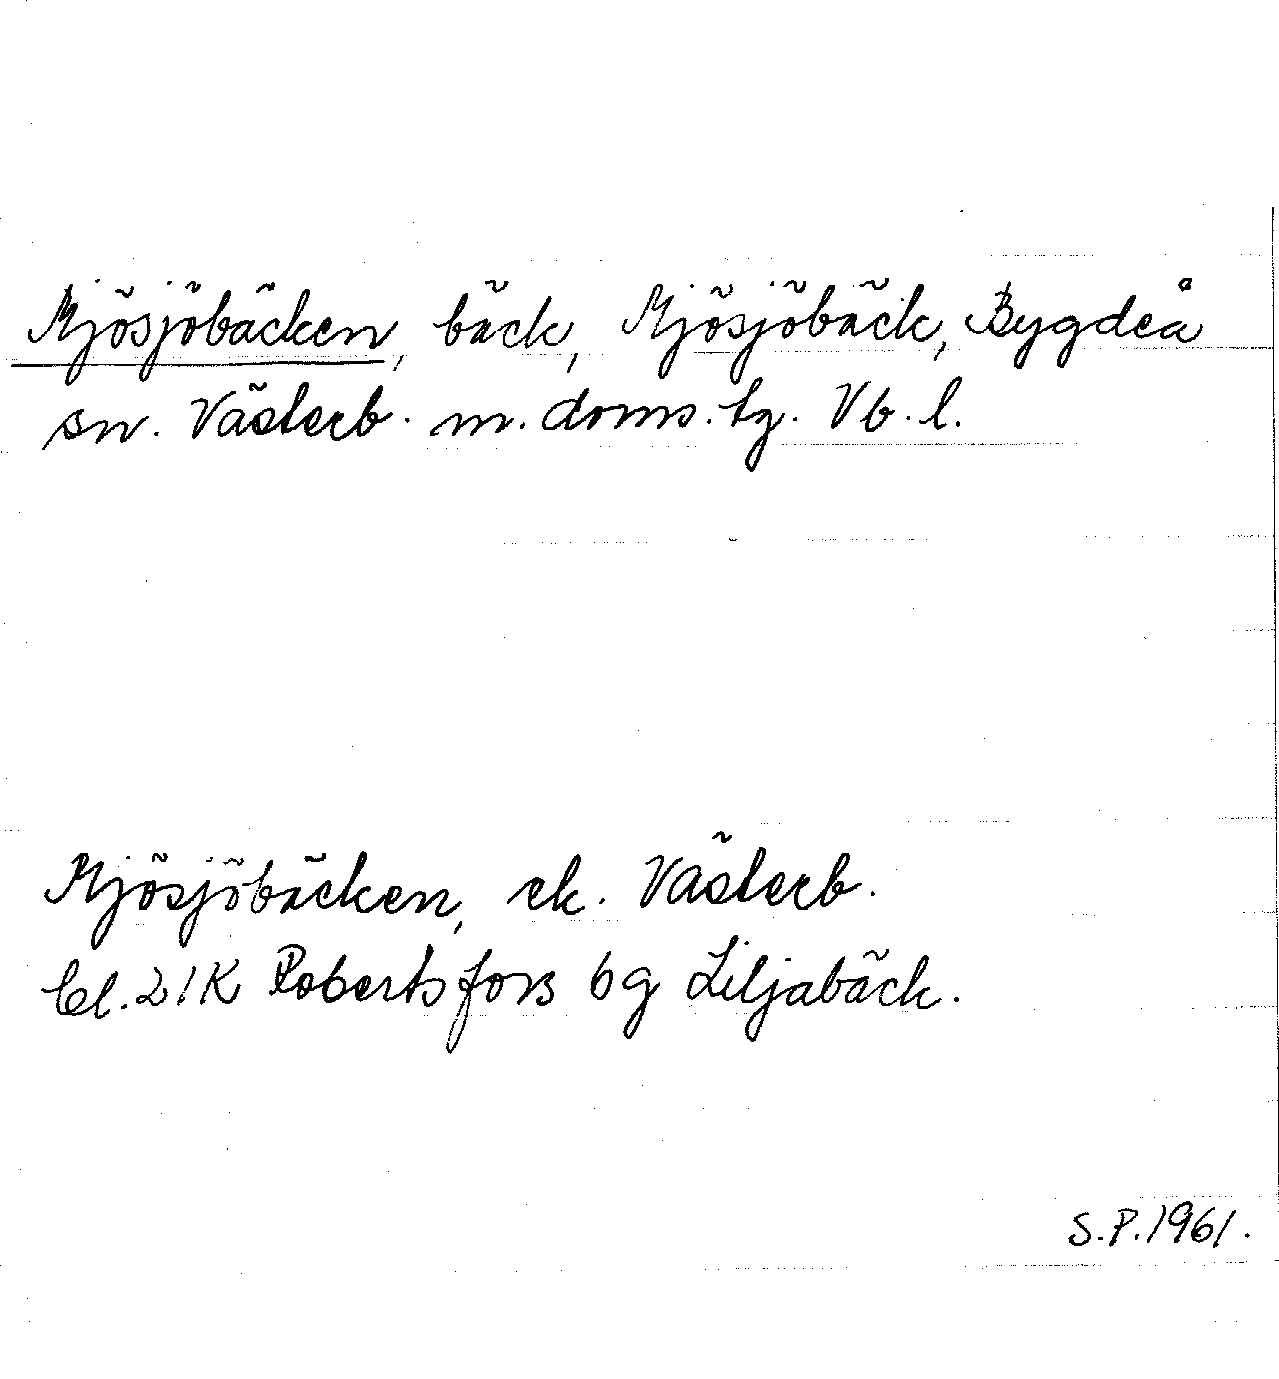 Mjösjöbäcken, bäck, Mjösjöbäck, Bygdeå
sn. Västerb. m. doms. tg. Vb. l.
Mjösjöbäcken, ek. Västerb.
bl. 21K Robertsfors 6g Liljabäck.
S.P. 1961.